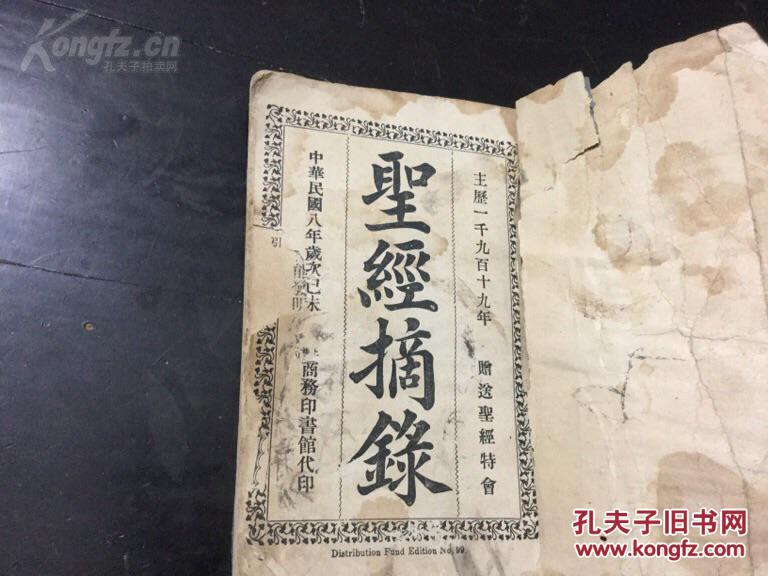 Kongfz.cn
孔夫子拍卖网
主歷一千九百十九年 贈送聖經特會
聖經摘錄
中華民國八年歲次己未 商務印書館代印
引
Distribution Fund Edition No. 99.
孔夫子旧书网
www.kongfz.com